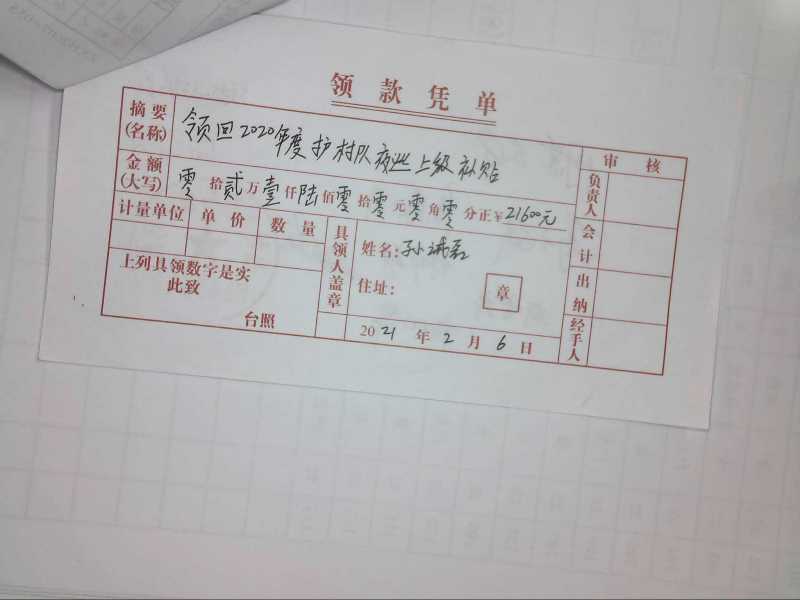 领款凭单
摘要(名称) 领回2020年度护村队夜巡上级补贴 审核
金额(大写) 零拾贰万壹仟陆佰零拾零元零角零分正¥21600元 负责人
计量单位 单价 数量 具领人盖章 姓名:孙 会计
上列具领数字是实 住址: 章 出纳
此致
台照 2021年2月6日 经手人